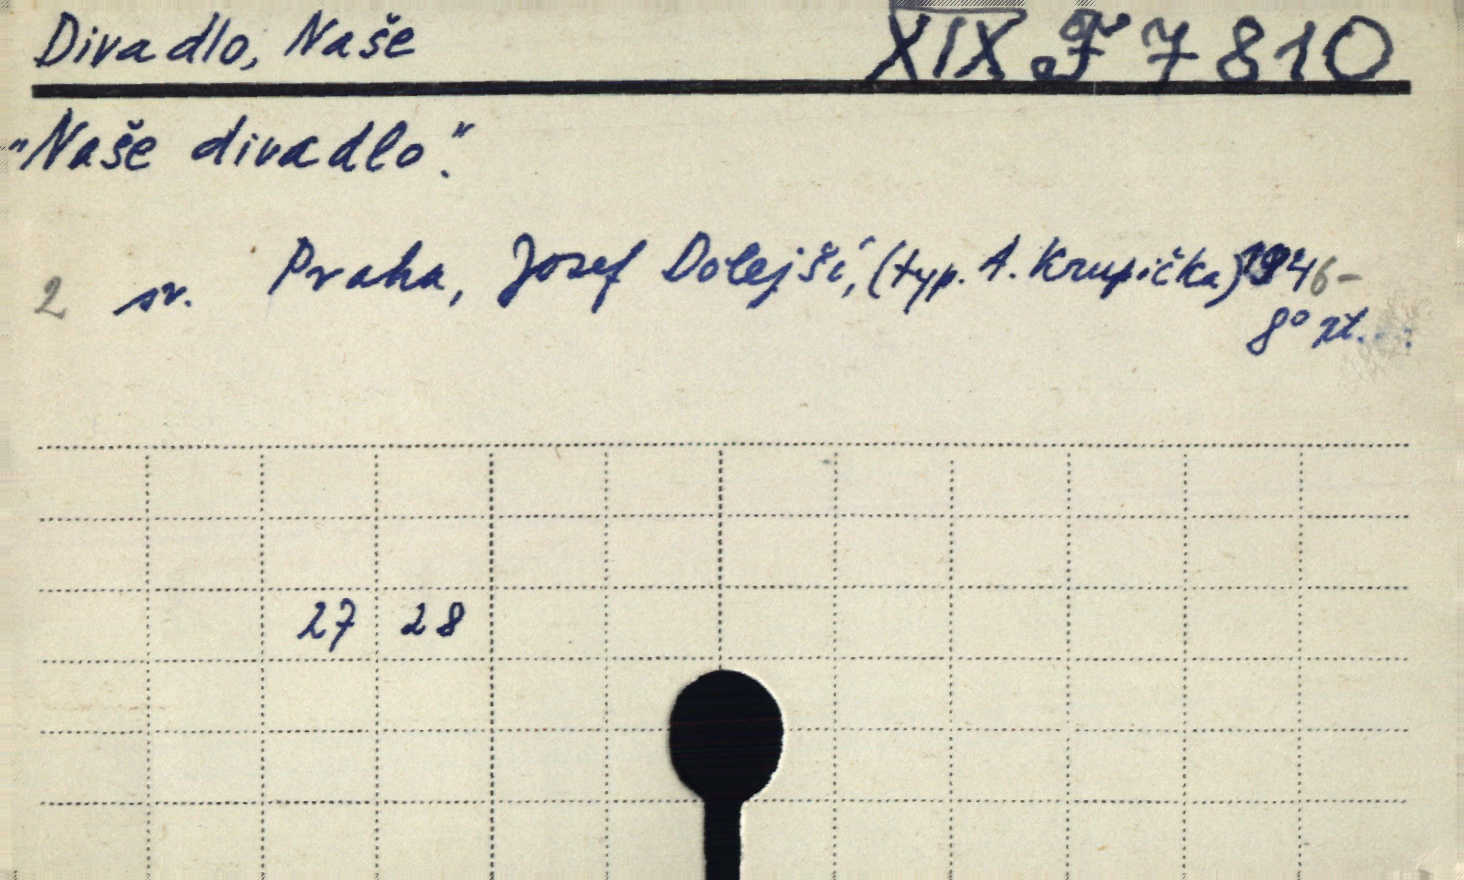 Divadlo, Naše XIX F 7810
"Naše divadlo".
2 sv. Praha, Josef Dolejší, (typ. A. Krupička) 1946-
8°
27 28